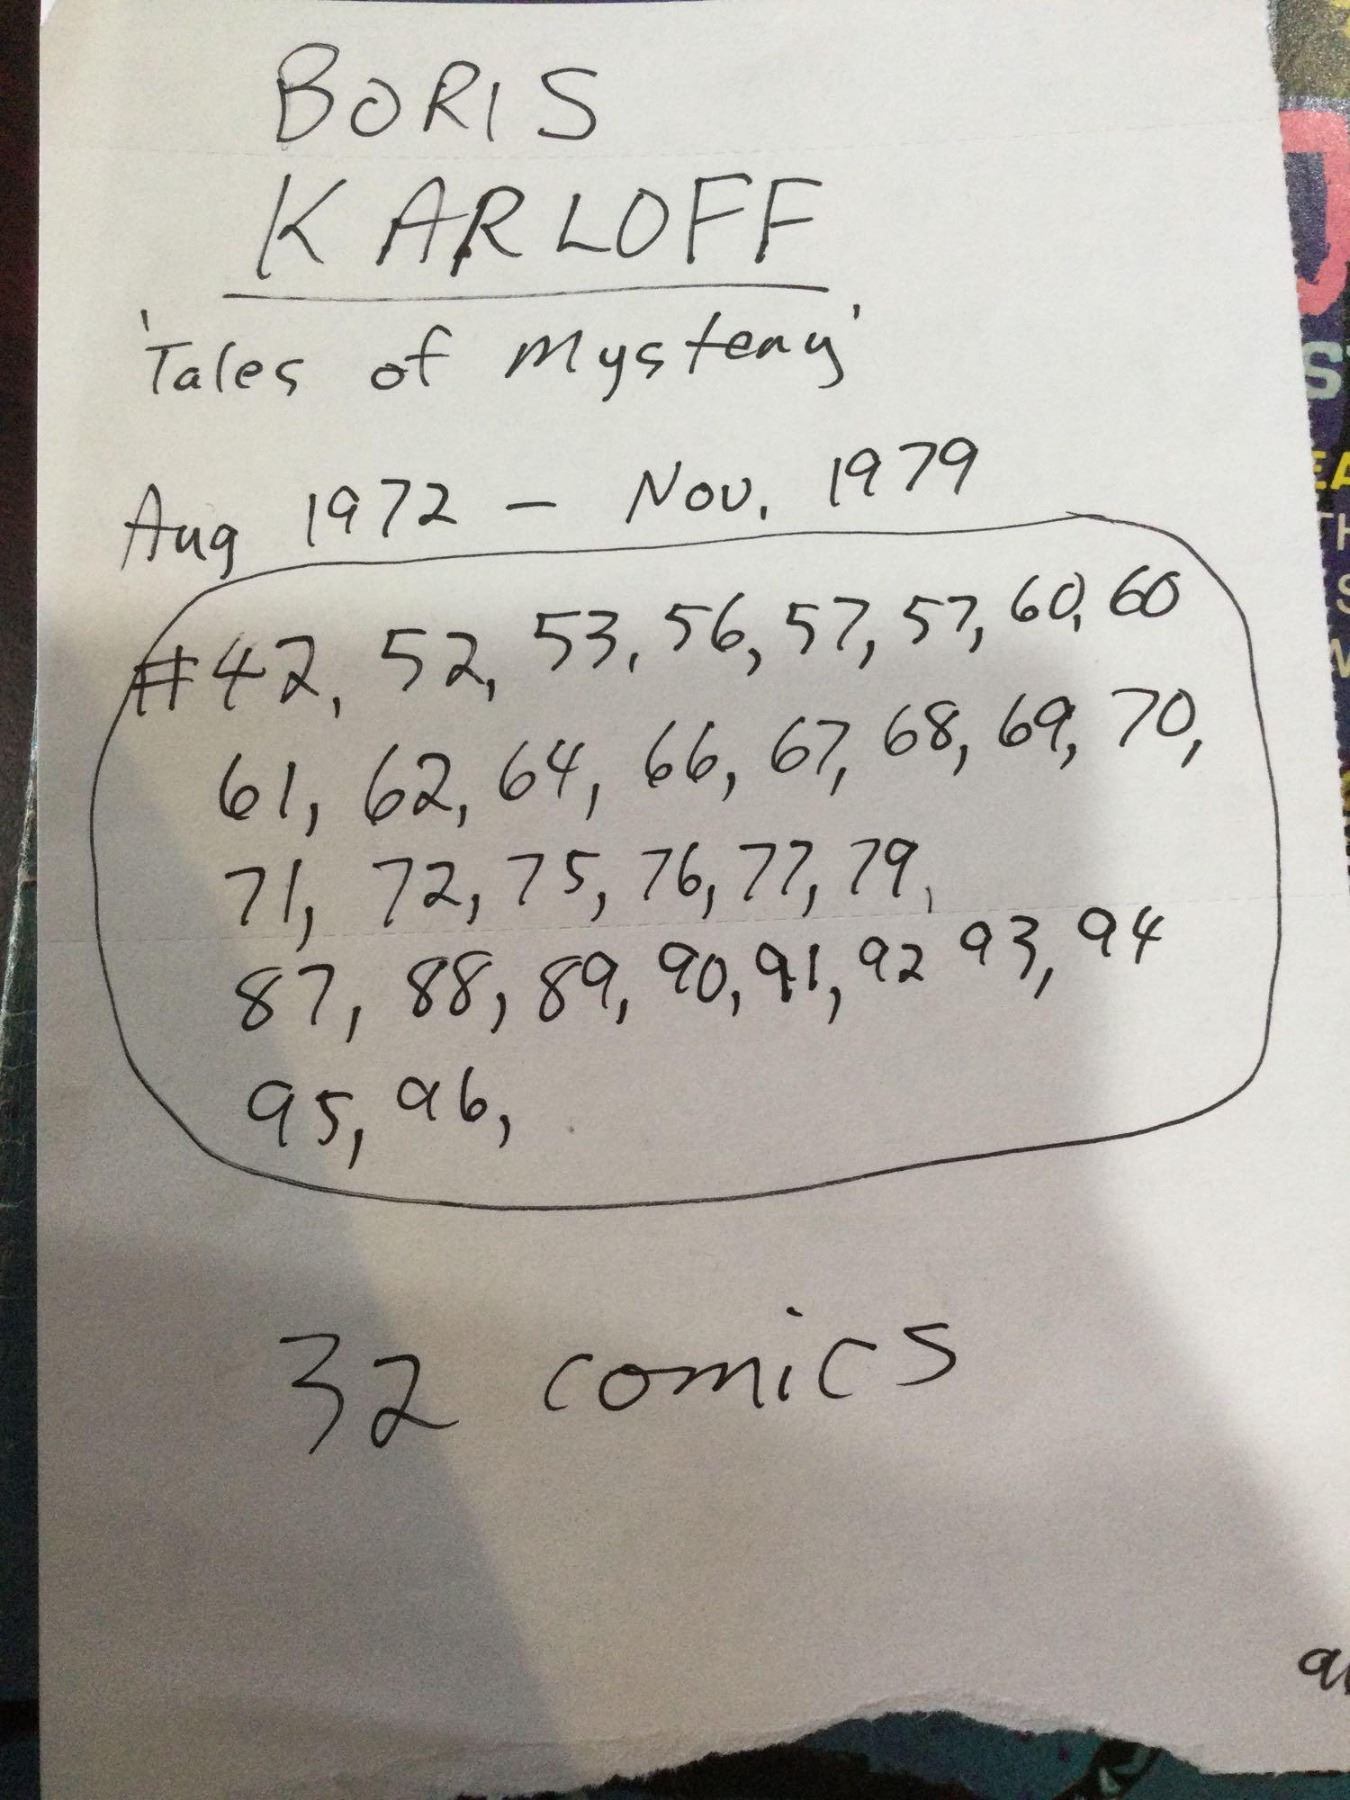 BORIS
KARLOFF
'Tales of Mystery'
Aug 1972 - Nov. 1979
#42, 52, 53, 56, 57, 57, 60, 60
61, 62, 64, 66, 67, 68, 69, 70,
71, 72, 75, 76, 77, 79,
87, 88, 89, 90, 91, 92 93, 94
95, 96,
32 comics